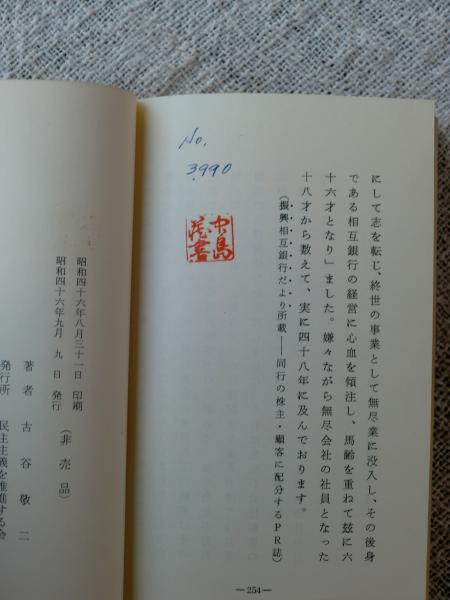 No.
3990
中島
蔵書
にして志を転じ、終世の事業として無尽業に没入し、その後身
である相互銀行の経営に心血を傾注し、馬齢を重ねて玆に六
十六才となり」ました。嫌々ながら無尽会社の社員となった
十八才から数えて、実に四十八年に及んでおります。
（振興相互銀行だより所載――同行の株主・顧客に配分するPR誌）
―254―
昭和四十六年八月三十一日 印刷
昭和四十六年九月 九 日 発行
（非売品）
著 者 古 谷 敬 二
発行所 民主主義を推進する会